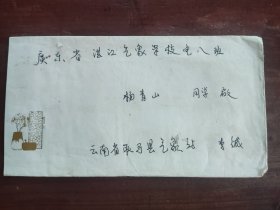 广东省湛江气象学校电八班
杨青山 同学 啟
云南省耿马县气象站 李缄